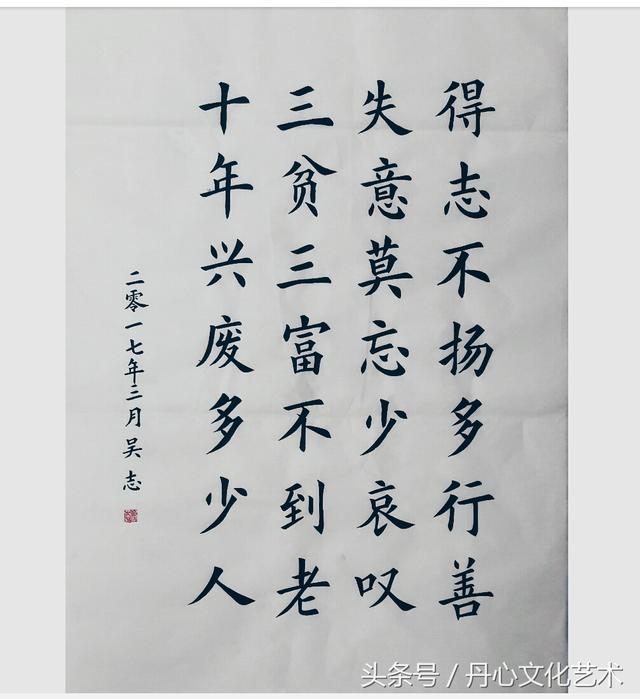 得志不扬多行善
失意莫忘少哀叹
三贫三富不到老
十年兴废多少人
二零一七年三月吴志
头条号／丹心文化艺术